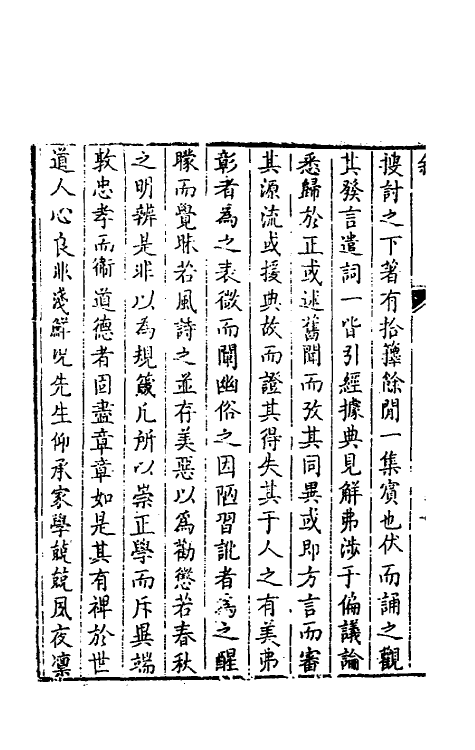 搜討之下著有拾籜餘閒一集賓也伏而誦之觀
其發言遣詞一皆引經據典見解弗涉于偏議論
悉歸於正或述舊聞而攷其同異或即方言而審
其源流或援典故而證其得失其于人之有美弗
彰者為之表微而闡幽俗之因陋習訛者為之醒
矇而覺昧若風詩之並存美惡以為勸懲若春秋
之明辨是非以為規箴凡所以崇正學而斥異端
敦忠孝而衛道德者固盡章章如是其有裨於世
道人心良非淺鮮況先生仰承家學兢兢夙夜凜